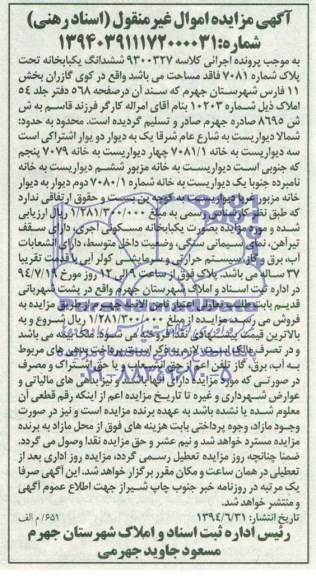 آگهی مزایده اموال غیر منقول (اسناد رهنی)
شماره: ۱۳۹۴۰۳۹۱۱۱۷۲۰۰۰۰۳۱
به موجب پرونده اجرائی کلاسه ۹۳۰۰۳۲۷ ششدانگ یکبابخانه تحت
پلاک شماره ۷۰۸۱ فاقد مساحت می باشد واقع در کوی گازران بخش
۱۱ فارس شهرستان جهرم که سند آن درصفحه ۵۶۸ دفتر جلد ۵۴
املاک ذیل شماره ۱۰۲۰۳ بنام آقای امراله کارگر فرزند قاسم به ش
ش ۸۶۹۵ صادره جهرم صادر و تسلیم گردیده است. محدود به حدود:
شمالا دیواریست به شارع عام شرقا یک به دیوار دو یوار اشتراکی است
سه دیواریست به خانه ۷۰۸۱/۱ چهار دیواریست به خانه ۷۰۷۹ پنجم
که جنوبی است دیواریست به خانه مزبور ششم دیواریست به خانه
نامبرده جنوبا یک دیواریست به خانه شماره ۷۰۸۰/۱ دوم دیوار به دیوار
خانه مزبور غربا دیواریست به کوچه بن بست و حقوق ارتفاقی ندارد
که طبق نظر کارشناس رسمی به مبلغ ۱/۲۸۱/۲۰۰/۰۰۰ ریال ارزیابی
شده و مورد مزایده بصورت یکبابخانه مسکونی آجری دارای سقف
تیرآهن، نمای سیمانی سنگی، وضعیت داخل متوسط، دارای انشعابات
آب، برق و گاز، سیستم حرارتی و سرمایشی کولر آبی با قدمت تقریبا
۳۷ ساله می باشد. پلاک فوق از ساعت ۹ الی ۱۲ روز مورخ ۹۴/۷/۱۹
در اداره ثبت اسناد و املاک شهرستان جهرم واقع در پشت شهربانی
قدیم بابت طلب
فروش می رسد. مزایده از مبلغ ۱/۲۸۱/۲۰۰/۰۰۰ ریال شروع و به
بالاترین قیمت پیشنهادی نقدا فروخته می شود. ملک بیمه می باشد
و در تصرف مالک است. لازم به ذکر است پرداخت بدهی های مربوط
به آب، برق، گاز تلفن اعم از حق انشعاب و یا حق اشتراک و مصرف
در صورتی که مورد مزایده دارای آنها باشد و نیز بدهی های مالیاتی و
عوارض شهرداری و غیره تا تاریخ مزایده اعم از اینکه رقم قطعی آن
معلوم شده یا نشده باشد به عهده برنده مزایده است و نیز در صورت
وجود مازاد، وجوه پرداختی بابت هزینه های فوق از محل مازاد به برنده
مزایده مسترد خواهد شد و نیم عشر و حق مزایده نقدا وصول می گردد.
ضمنا چنانچه روز مزایده تعطیل رسمی گردد، مزایده روز اداری بعد از
تعطیلی در همان ساعت و مکان مقرر برگزار خواهد شد. این آگهی صرفا
یک مرتبه در روزنامه خبر جنوب چاپ شیراز جهت اطلاع عموم آگهی
و منتشر خواهد شد.
تاریخ انتشار: ۱۳۹۴/۶/۳۱ ۶۵۱/م الف
رئیس اداره ثبت اسناد و املاک شهرستان جهرم
مسعود جاوید جهرمی